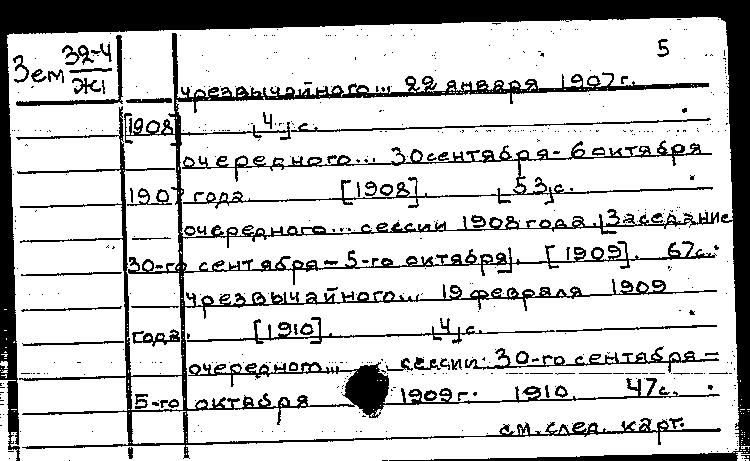 5
Зем 32-4
Ж1
чрезвычайного... 22 января 1907 г.
[1908] [4] с.
очередного... 30 сентября - 6 октября
1907 года. [1908]. [53] с.
очередного... сессии 1908 года. [Заседание
30-го сентября - 5-го октября]. [1909]. 67 с.
чрезвычайного... 19 февраля 1909
года. [1910]. [4] с.
очередного... сессии 30-го сентября -
5-го октября 1909 г. 1910. 47 с.
см. след. карт.